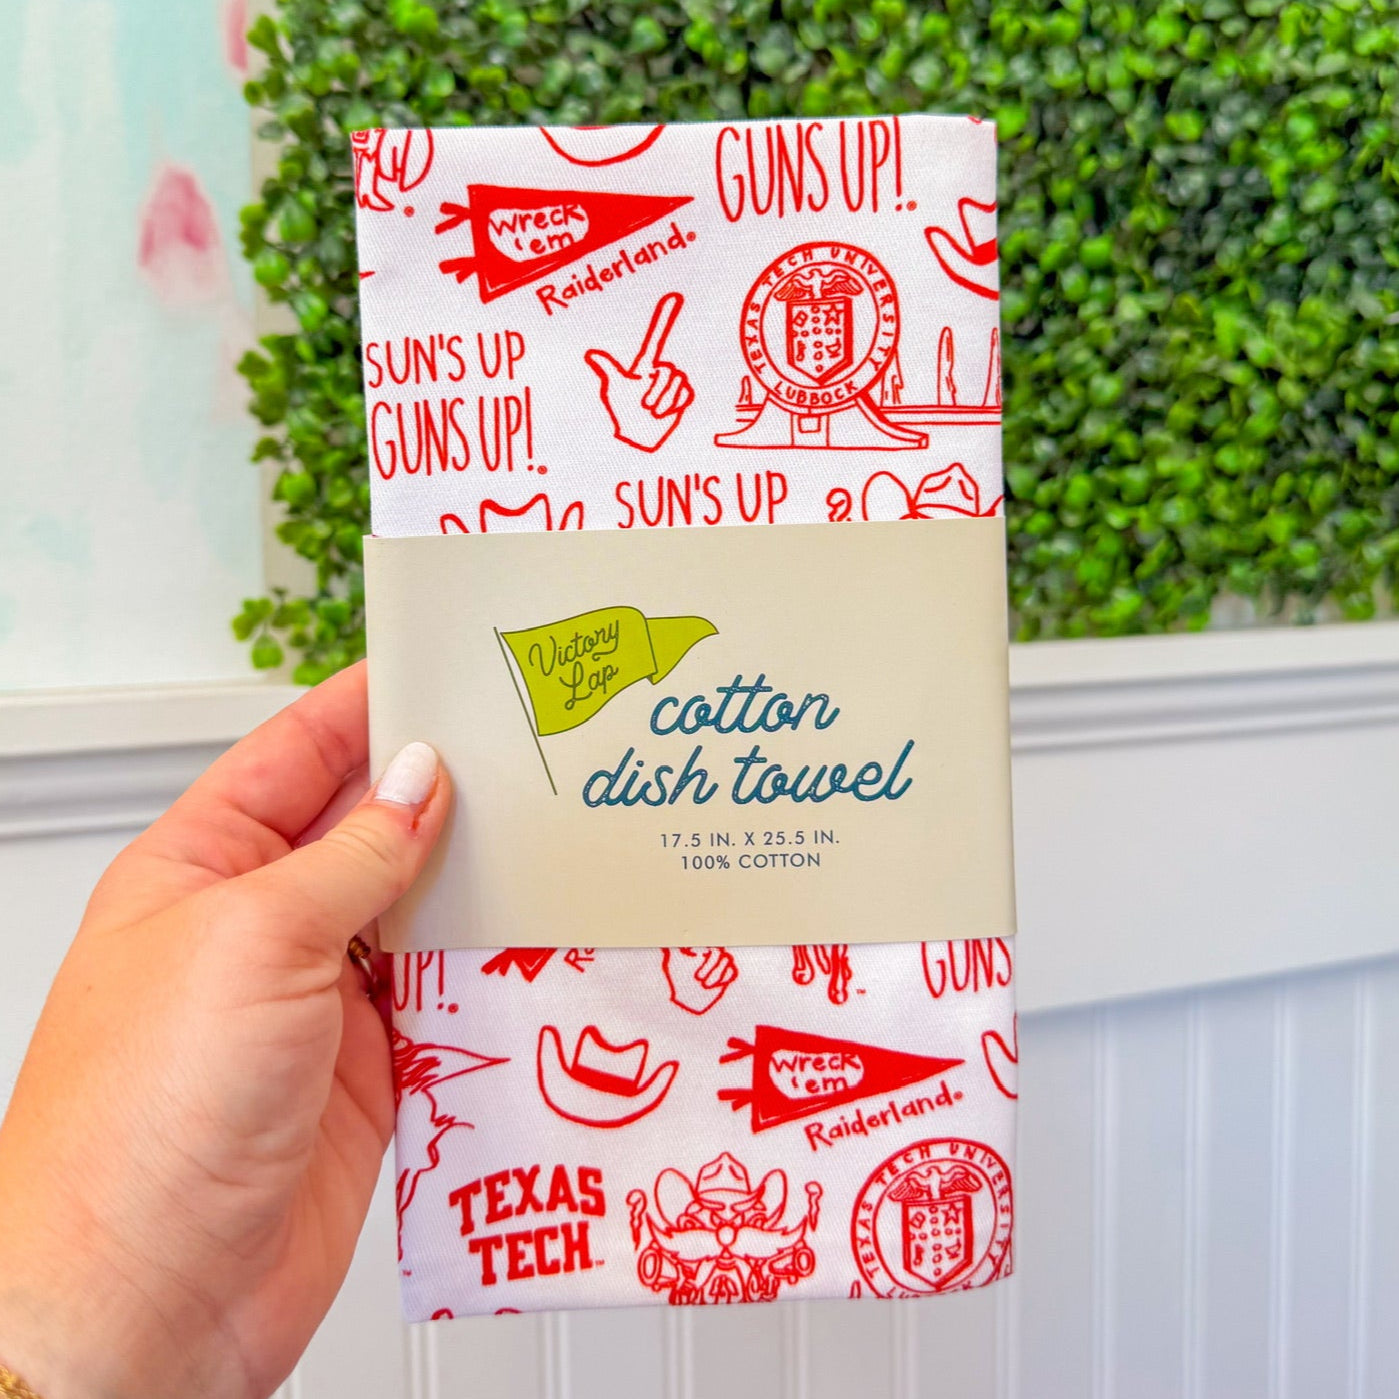 GUNS UP!®
wreck
'em
Raiderland®
TEXAS TECH UNIVERSITY
LUBBOCK
SUN'S UP
GUNS UP!®
SUN'S UP
Victory
Lap
cotton
dish towel
17.5 IN. X 25.5 IN.
100% COTTON
UP!®
GUNS
wreck
'em
Raiderland®
TEXAS
TECH™
TEXAS TECH UNIVERSITY